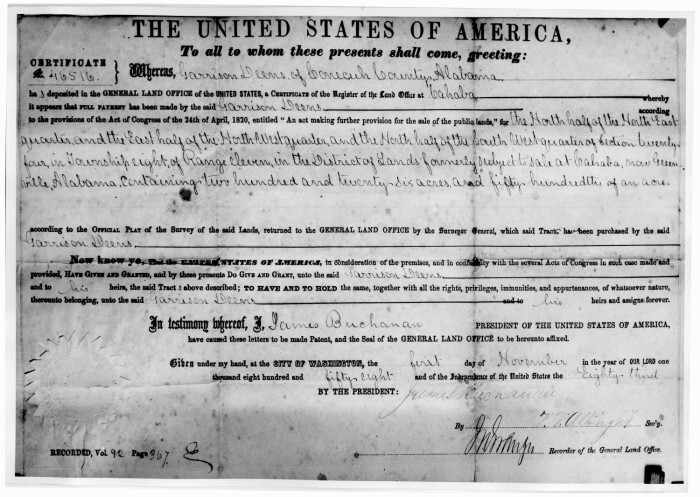 THE UNITED STATES OF AMERICA,
To all to whom these presents shall come, greeting:
CERTIFICATE
46516.
Whereas, Garrison Deens, of Conecuh County, Alabama
ha s deposited in the GENERAL LAND OFFICE of the UNITED STATES, a Certificate of the Register of the Land Office at Cahaba whereby
it appears that FULL PAYMENT has been made by the said Garrison Deens according
to the provisions of the Act of Congress of the 24th of April, 1820, entitled "An act making further provision for the sale of the public lands," for the North half of the North East
quarter, and the East half of the North West quarter, and the North half of the South West quarter of Section twenty
four, in Township eight, of Range Eleven, in the District of Lands formerly subject to sale at Cahaba, now Green
ville, Alabama, containing two hundred and twenty six acres, and fifty hundredths of an acre
according to the OFFICIAL PLAT of the Survey of the said Lands, returned to the GENERAL LAND OFFICE by the Surveyor General, which said Tract has been purchased by the said
Garrison Deens
Now know ye, That the UNITED STATES OF AMERICA, in consideration of the premises, and in conformity with the several Acts of Congress in such case made and
provided, HAVE GIVEN AND GRANTED, and by these presents DO GIVE AND GRANT, unto the said Garrison Deens
and to his heirs, the said Tract above described; TO HAVE AND TO HOLD the same, together with all the rights, privileges, immunities, and appurtenances, of whatsoever nature,
thereunto belonging, unto the said Garrison Deens and to his heirs and assigns forever.
In testimony whereof, I, James Buchanan PRESIDENT OF THE UNITED STATES OF AMERICA,
have caused these letters to be made Patent, and the Seal of the GENERAL LAND OFFICE to be hereunto affixed.
Given under my hand, at the CITY OF WASHINGTON, the first day of November in the year of OUR LORD one
thousand eight hundred and fifty eight and of the Independence of the United States the Eighty third
BY THE PRESIDENT: James Buchanan
By Sec'y.
Recorder of the General Land Office.
RECORDED, Vol. 92 Page 367